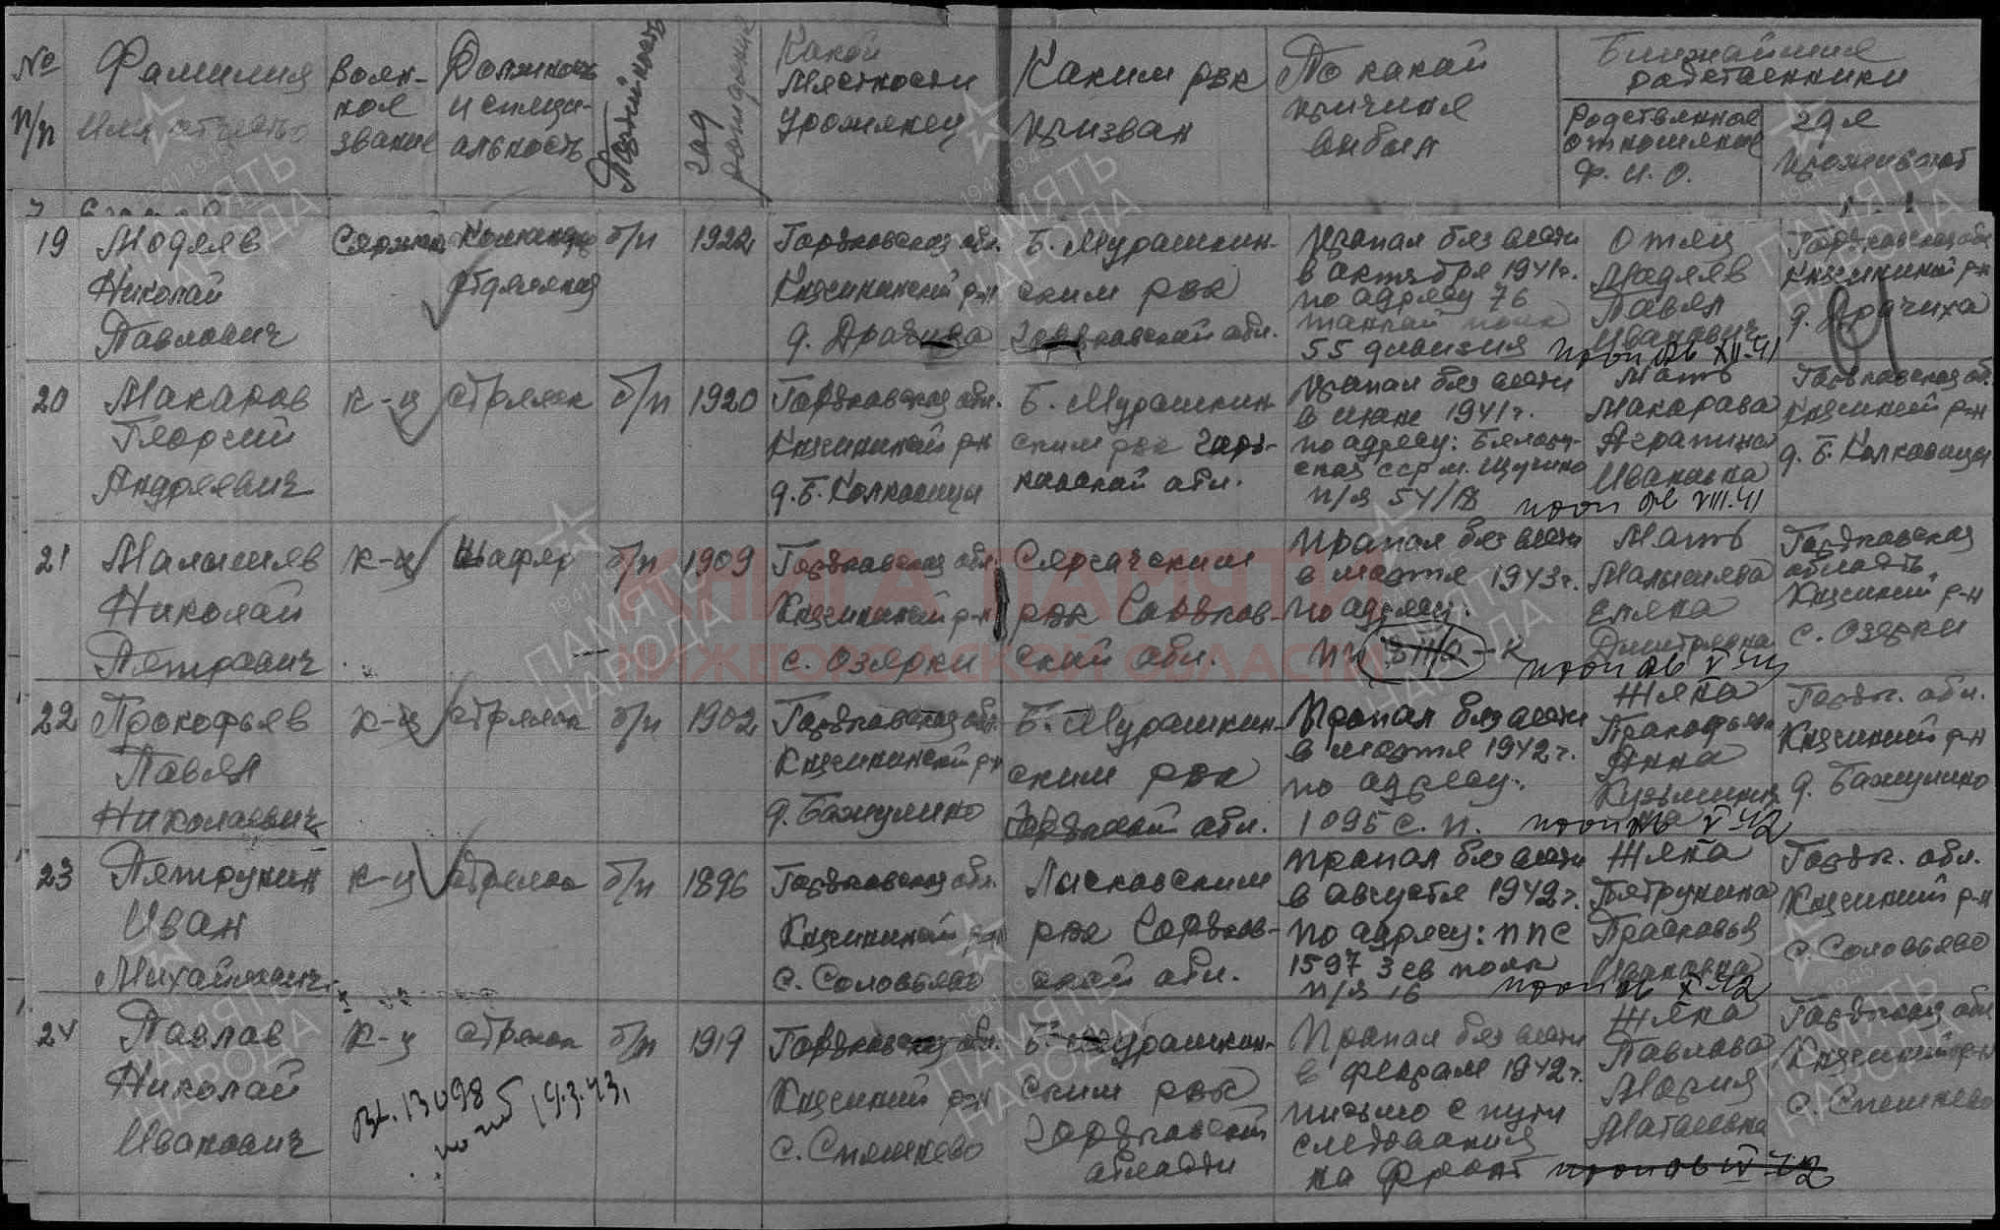 № п/п
Фамилия
Имя отчество
Воен-
ное
звание
Должность
и специ-
альность
Партийность
год
рождения
Какой
местности
уроженец
Каким рвк
призван
По какой
причине
выбыл
Ближайшие
родственники
Родственное
отношение
Ф. И. О.
где
проживают
19
Модяев
Николай
Павлович
Сержант
Командир
отделения
б/п
1922
Горьковская обл.
Княгининский р-н
д. Драчиха
Б. Мурашкин-
ским рвк
Горьковской обл.
Пропал без вести
в октябре 1941г.
по адресу 76
танкай полк
55 дивизия
проп. б/в XII-41
Отец
Модяев
Павел
Иванович
Горьковская обл.
Княгинкий р-н
д. Драчиха
20
Макаров
Георгий
Андреевич
к-ц
стрелок
б/п
1920
Горьковская обл.
Княгинкий р-н
д. Б. Колковицы
Б. Мурашкин-
ским рвк Горь-
ковской обл.
Пропал без вести
в июне 1941г.
по адресу: Белору-
ская сср м. Щучино
п/я 54/18
проп б/в VIII.41
Мать
Макарова
Аграпина
Ивановна
Горьковская об.
Княгинкий р-н
д. Б. Колковицы
21
Малышев
Николай
Петрович
к-ц
Шафер
б/п
1909
Горьковская обл.
Княгинкий р-н
с. Озерки
Сергачским
рвк Горьков-
ский обл.
Пропал без вести
в марте 1943г.
по адресу:
проп б/в V-43
Мать
Малышева
Елена
Дмитревна
Горьковская
область
Княгинкий р-н
с. Озерки
22
Прокофьев
Павел
Николаевич
к-ц
стрелок
б/п
1902
Горьковская обл.
Княгининский р-н
д. Бажулино
Б. Мурашкин-
ским рвк
Горьковской обл.
Пропал без вести
в марте 1942г.
по адресу:
1095 с. п.
проп б/в V-42
Жена
Прокофьева
Анна
Кузьминична
Горьк. обл.
Княгинкий р-н
д. Бажулино
23
Петрунин
Иван
Михайлович
к-ц
стрелок
б/п
1896
Горьковская обл.
Княгинкий р-н
с. Соловьево
Лысковским
рвк Горьков-
ской обл.
Пропал без вести
в августе 1942г.
по адресу: ппс
1597 3 св полк
п/я 16
проп б/в X-42
Жена
Петрунина
Прасковья
Ивановна
Горьк. обл.
Княгинкий р-н
с. Соловьево
24
Павлов
Николай
Иванович
к-ц
стрелок
б/п
1919
Вх. 13098
погиб 19.3.43.
Горьковская обл.
Княгинкий р-н
с. Спешнево
Б. Мурашкин-
ским рвк
Горьковской
области
Пропал без вести
в феврале 1942г.
письмо с пути
следования
на фронт
проп б/в IV-42
Жена
Павлова
Мария
Матвеевна
Горьковская обл
Княгинкий р-н
с. Спешнево
КНИГА ПАМЯТИ
НИЖЕГОРОДСКОЙ ОБЛАСТИ
ПАМЯТЬ
НАРОДА
1941-1945